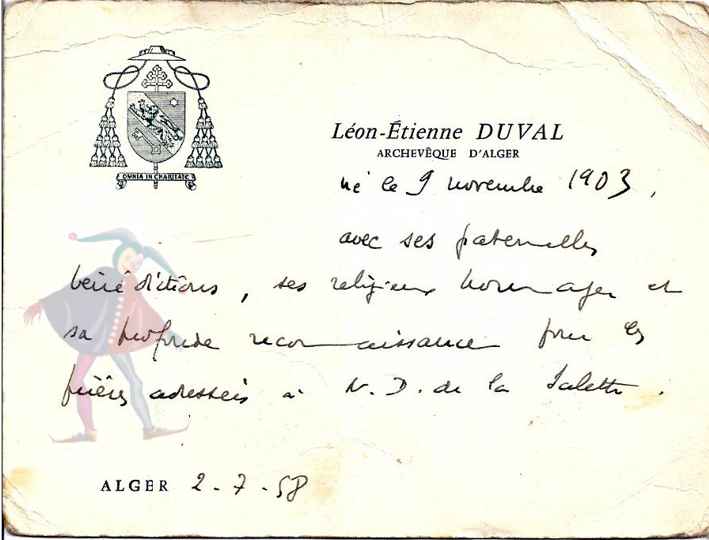 OMNIA IN CHARITATE
Léon-Étienne DUVAL
ARCHEVÊQUE D'ALGER
né le 9 novembre 1903,
avec ses paternelles
bénédictions, ses religieux hommages et
sa profonde reconnaissance pour les
prières adressées à N. D. de la Salette.
ALGER 2-7-58